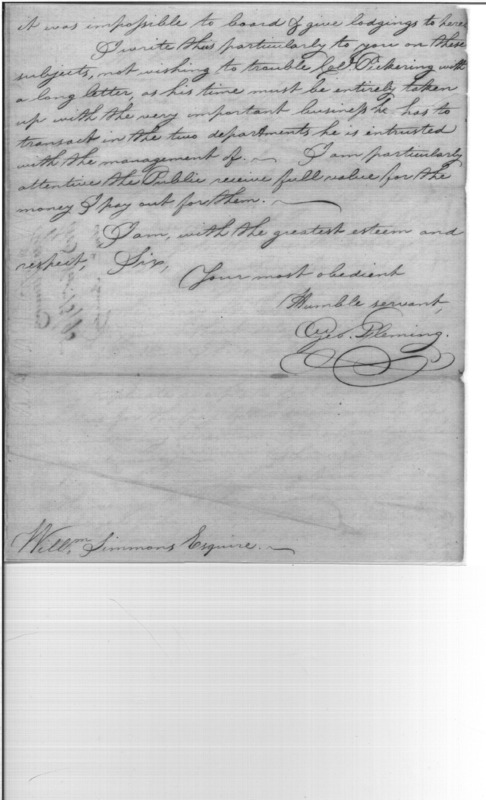 it was impossible to board & give lodgings to here
I write thus particularly to you on these
subjects, not wishing to trouble Col. Pickering with
a long letter, as his time must be entirely taken
up with the very important business he has to
transact in the two departments he is intrusted
with the management of. I am particularly
attentive the Public receive full value for the
money I pay out for them.
I am, with the greatest esteem and
respect, Sir,
Your most obedient
Humble servant,
Geo. Fleming.
Willm. Simmons Esquire.